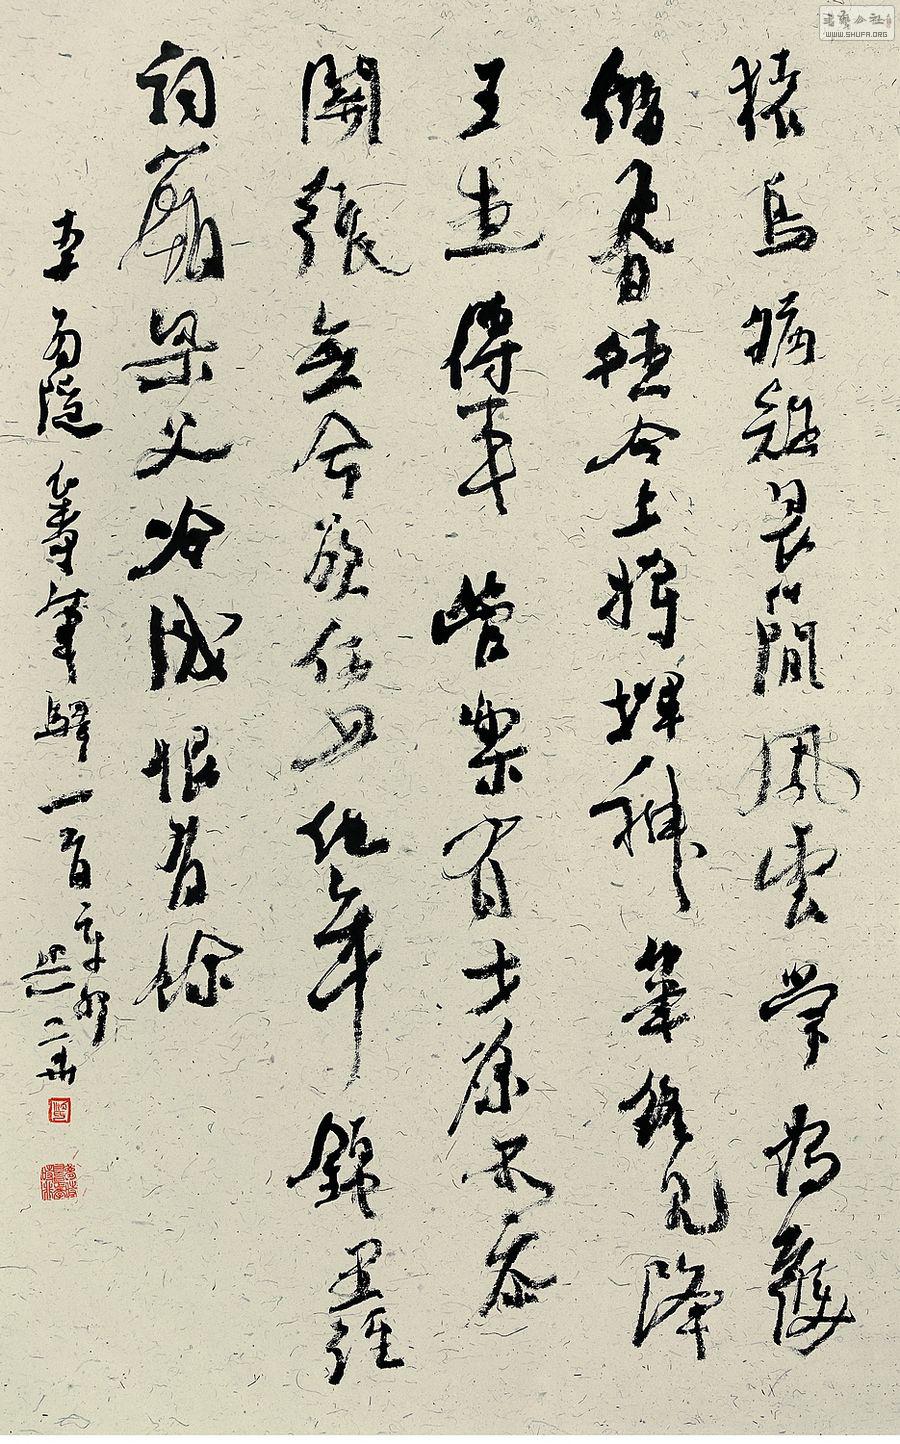 猿鳥猶疑畏簡風雲常為護
儲胥徒令上將揮神筆終見降
王走傳車管樂有才原不忝
關張無命欲何如他年錦里經
祠廟梁父吟成恨有餘
李商隱籌筆驛一首辛卯
書藝公社
WWW.SHUFA.ORG